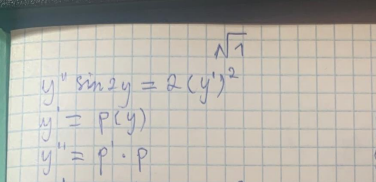 √1
y'' sin2y = 2(y')²
y' = p(y)
y'' = p' · p